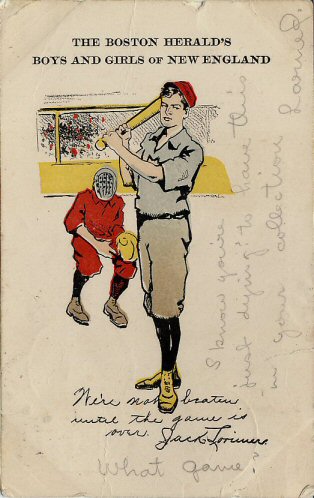 THE BOSTON HERALD'S
BOYS AND GIRLS OF NEW ENGLAND
We're not beaten
until the game is
over. Jack Lorimer.
What game?
I know you're
just dying to have this
in your collection